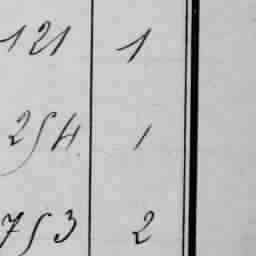 121 1
254 1
753 2